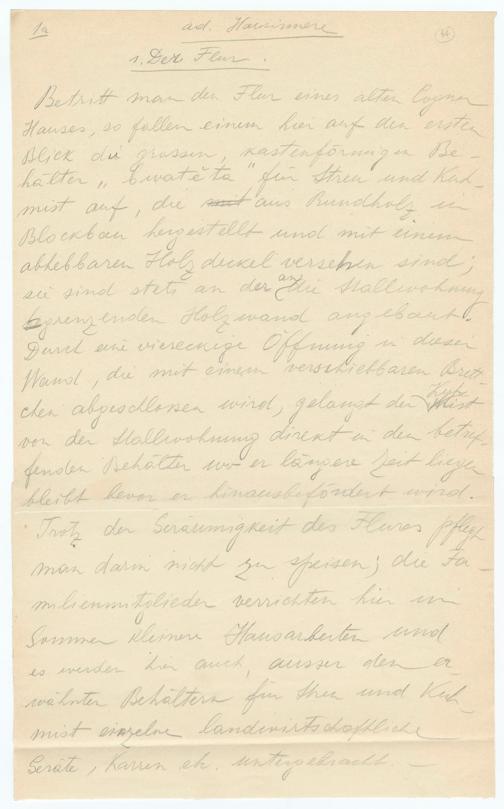 1a ad. Hausinnere 44
1. Der Flur.
Betritt man den Flur eines alten Cogner
Hauses, so fallen einem hier auf den ersten
Blick die grossen, kastenförmigen Be-
hälter „bwatĕta" für Streu und Kuh-
mist auf, die aus Rundholz in
Blockbau hergestellt und mit einem
abhebbaren Holzdeckel versehen sind;
sie sind stets an der an die Stallwohnung
grenzenden Holzwand angebaut.
Durch eine viereckige Öffnung in dieser
Wand, die mit einem verschiebbaren Brett-
chen abgeschlossen wird, gelangt der Kuhmist
von der Stallwohnung direkt in den betref-
fenden Behälter wo er längere Zeit liegen
bleibt bevor er hinausbefördert wird.
Trotz der Geräumigkeit des Flures pflegt
man darin nicht zu speisen; die Fa-
milienmitglieder verrichten hier im
Sommer kleinere Hausarbeiten und
es werden hier auch, ausser den er-
wähnten Behältern für Streu und Kuh-
mist einzelne landwirtschaftliche
Geräte, Karren etc. untergebracht. —